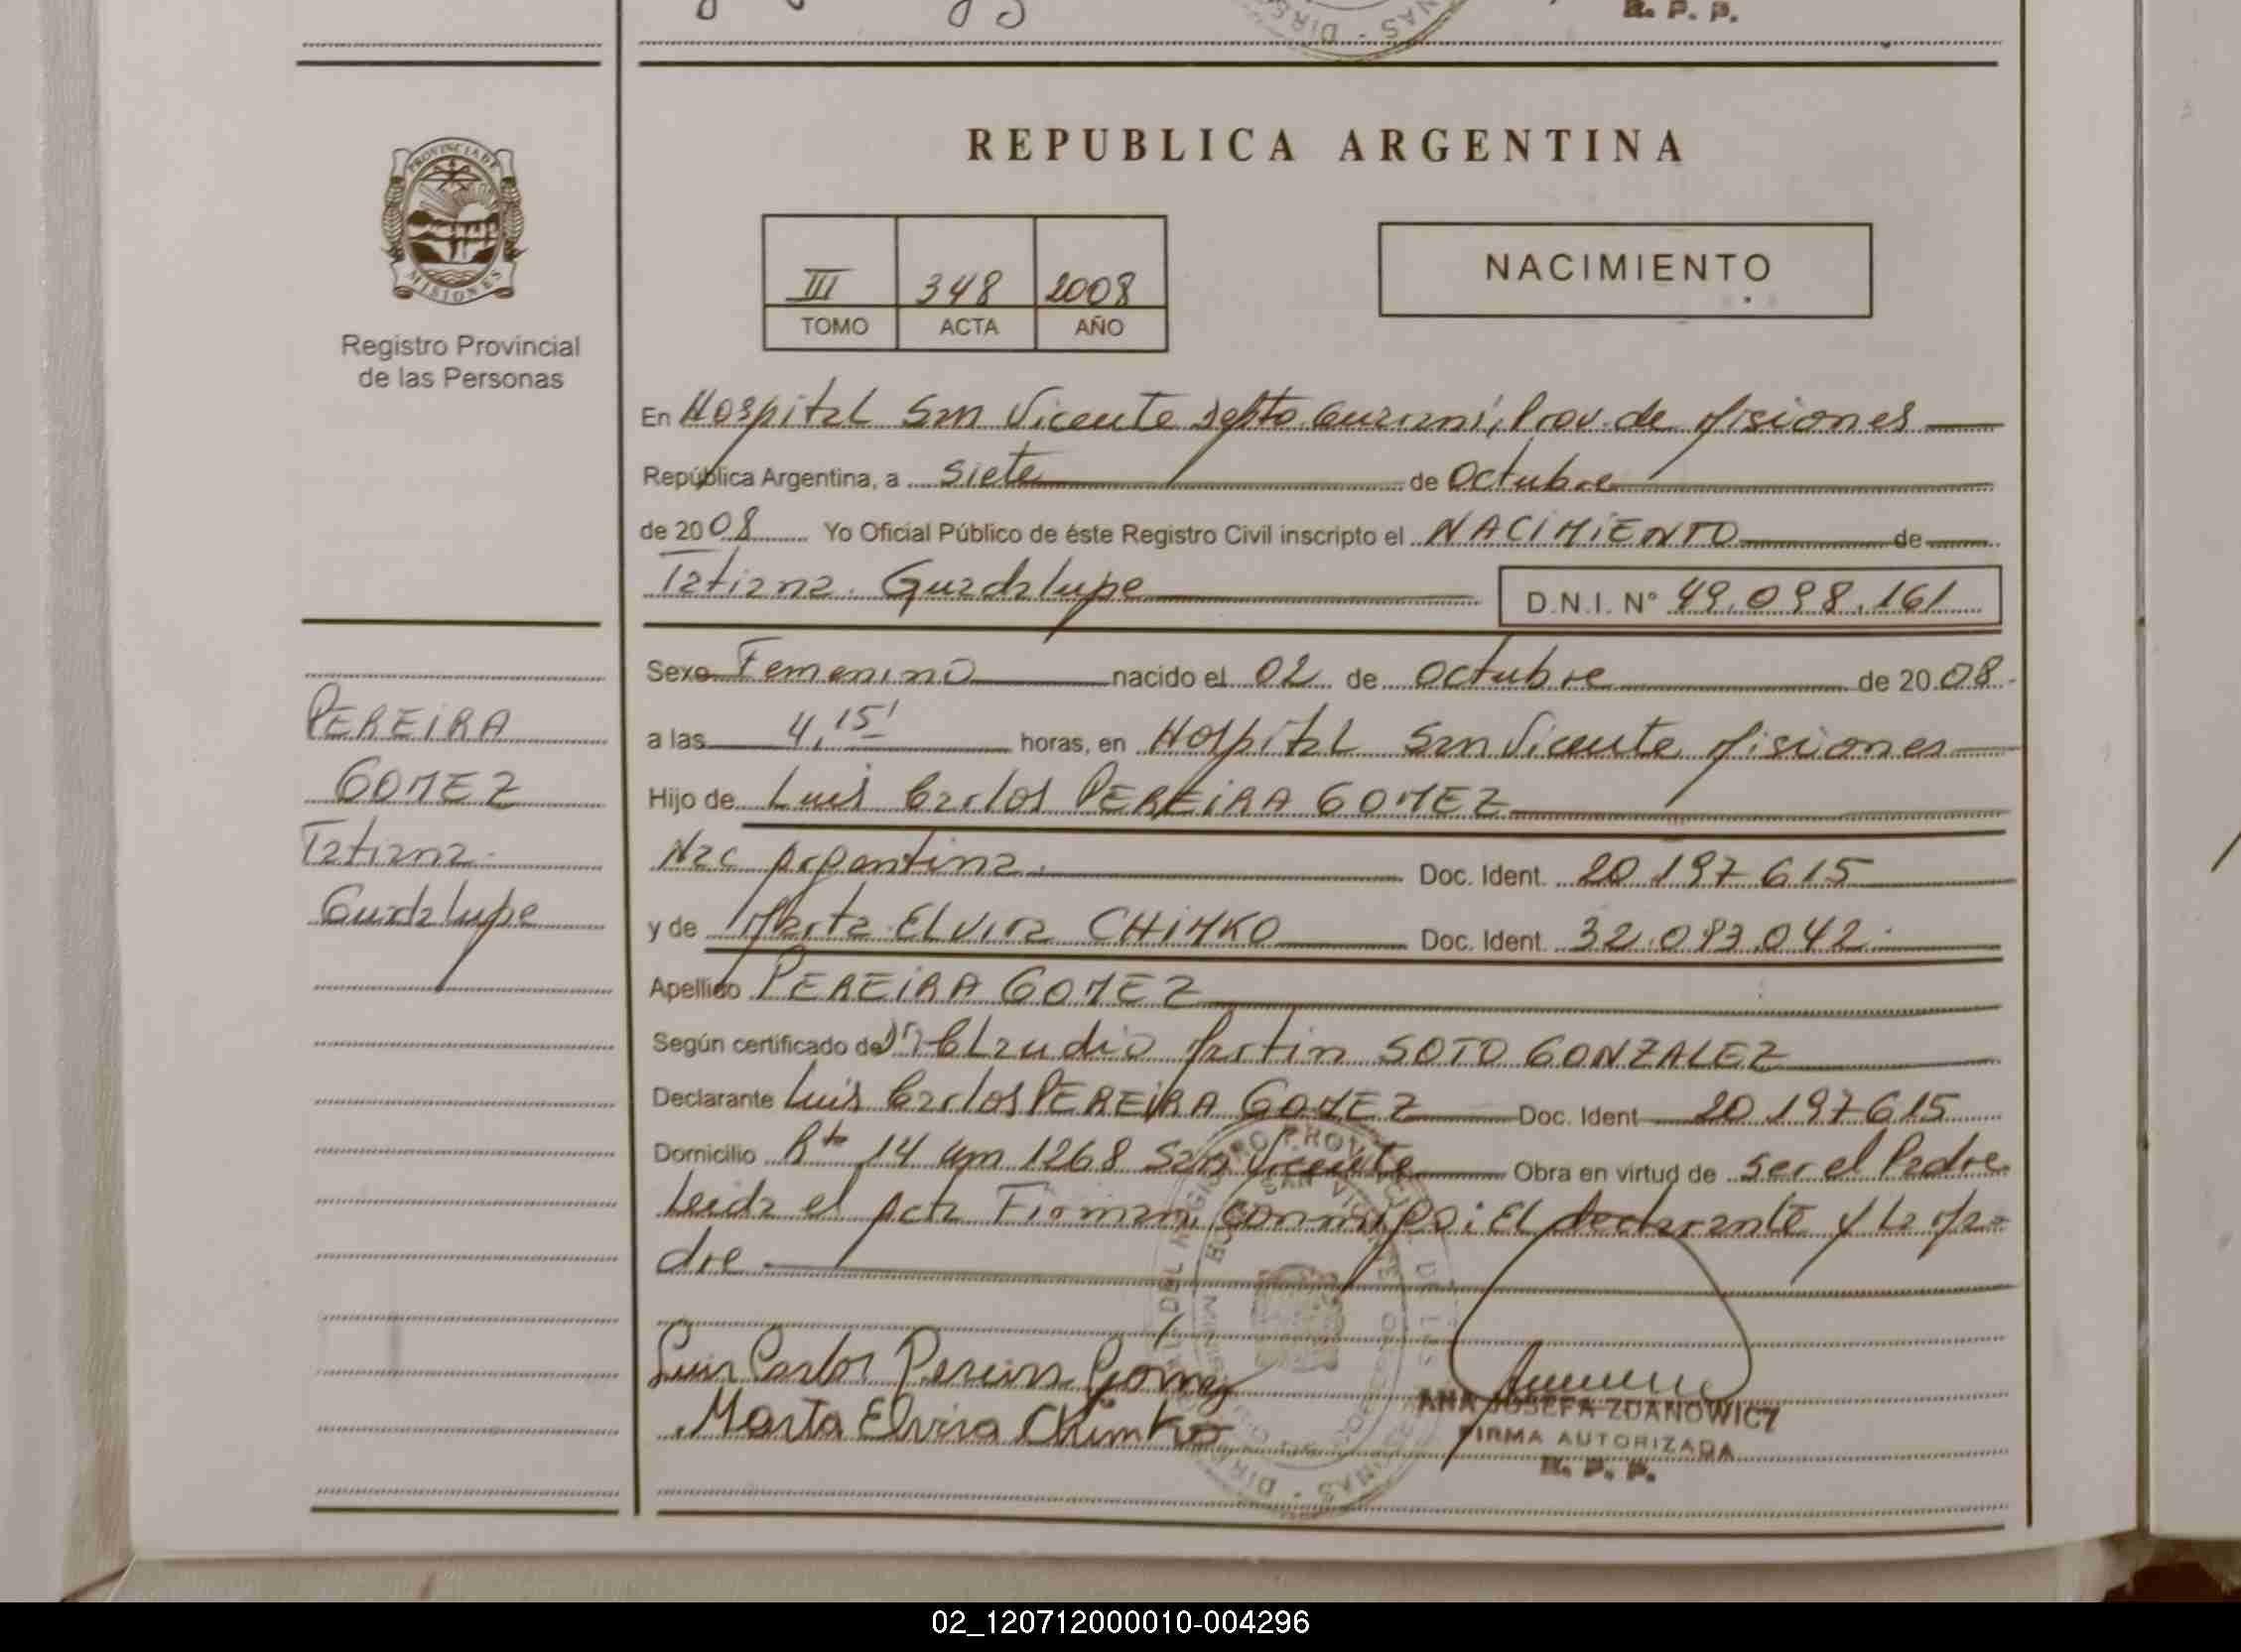 R. P. P.
REPUBLICA ARGENTINA
PROVINCIA DE
MISIONES
Registro Provincial
de las Personas
III 348 2008
TOMO ACTA AÑO
NACIMIENTO
En Hospital San Vicente Depto. Guarani, Prov. de Misiones
República Argentina, a siete de Octubre
de 2008 Yo Oficial Público de éste Registro Civil inscripto el NACIMIENTO de
Tatiana Guadalupe D.N.I. N° 49.098.161
Sexo Femenino nacido el 02 de Octubre de 2008
a las 4,15' horas, en Hospital San Vicente Misiones
Hijo de Luis Carlos PEREIRA GOMEZ
Nac Argentina. Doc. Ident. 20.197.615
y de Marta Elvira CHIMKO Doc. Ident. 32.093.042
Apellido PEREIRA GOMEZ
Según certificado de Dr. Claudio Martin SOTO GONZALEZ
Declarante Luis Carlos PEREIRA GOMEZ Doc. Ident 20.197.615
Domicilio Rta 14 Km 1268 San Vicente Obra en virtud de ser el Padre
Leida el Acta Firman conmigo: El declarante y La Ma-
dre
Luis Carlos Pereira Gomez
Marta Elvira Chimko
ANA JOSEFA ZDANOWICZ
FIRMA AUTORIZADA
R. P. P.
PEREIRA
GOMEZ
Tatiana
Guadalupe
02_120712000010-004296